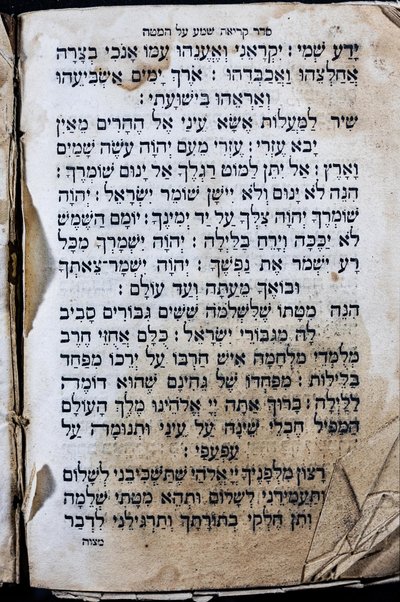 סדר קריאה שמע על המטה
ידע שמי: יקראני ואענהו עמו אנכי בצרה
אחלצהו ואכבדהו: אורך ימים אשביעהו
ואראהו בישועתי:
שיר למעלות אשא עיני אל ההרים מאין
יבא עזרי: עזרי מעם יהוה עשה שמים
וארץ: אל יתן למוט רגלך אל ינום שומרך:
הנה לא ינום ולא יישן שומר ישראל: יהוה
שומרך יהוה צלך על יד ימינך: יומם השמש
לא יככה וירח בלילה: יהוה ישמרך מכל
רע ישמר את נפשך: יהוה ישמר־צאתך
ובואך מעתה ועד עולם:
הנה מטתו שלשלמה ששים גבורים סביב
לה מגבורי ישראל: כלם אחוזי חרב
מלמדי מלחמה איש חרבו על ירכו מפחד
בלילות: מפחדו של גהינם שהוא דומה
ללילה: ברוך אתה יי אלהינו מלך העולם
המפיל חבלי שינה על עיני ותנומה על
עפעפי:
רצון מלפניך יי אלהי שתשכיבני לשלום
ותעמידני לשלום ותהא מטתי שלמה
ותן חלקי בתורתך ותרגילני לדבר
מצוה